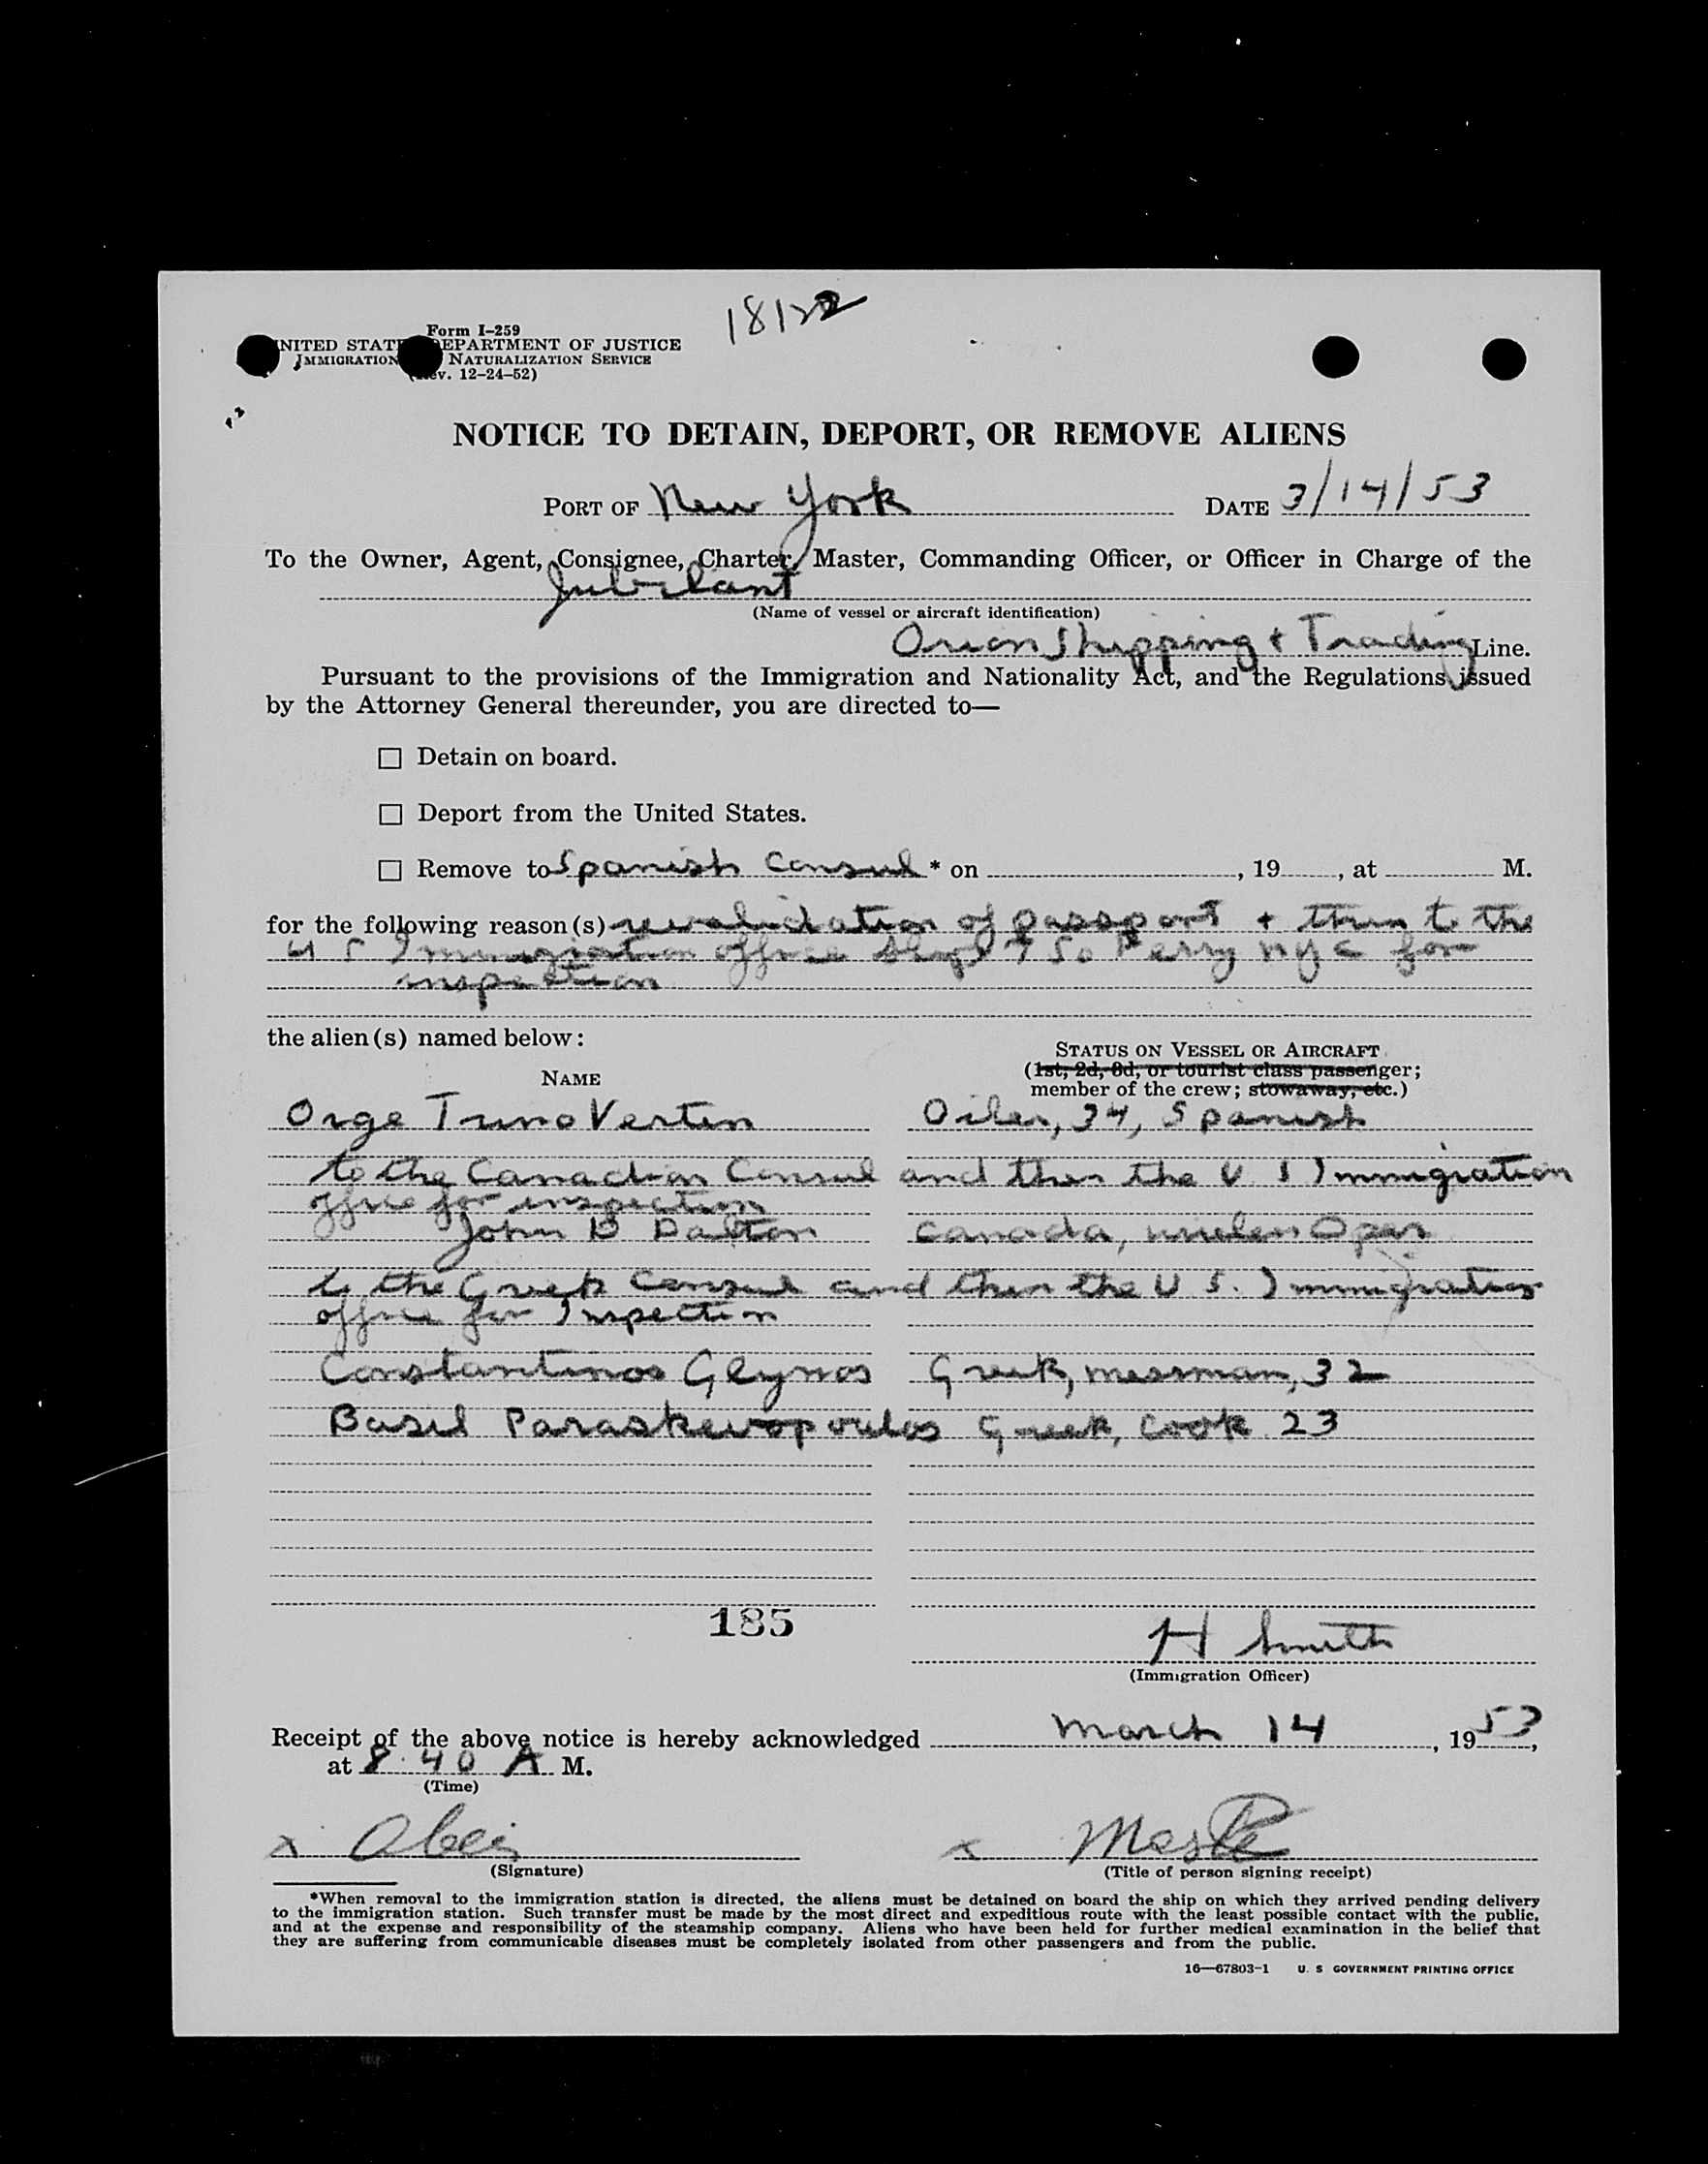 18122
Form I-259
UNITED STATES DEPARTMENT OF JUSTICE
IMMIGRATION NATURALIZATION SERVICE
(Rev. 12-24-52)
NOTICE TO DETAIN, DEPORT, OR REMOVE ALIENS
PORT OF New York DATE 3/14/53
To the Owner, Agent, Consignee, Charter, Master, Commanding Officer, or Officer in Charge of the
Jubilant
(Name of vessel or aircraft identification)
Orion Shipping + Trading Line.
Pursuant to the provisions of the Immigration and Nationality Act, and the Regulations issued
by the Attorney General thereunder, you are directed to—
☐ Detain on board.
☐ Deport from the United States.
☐ Remove to Spanish Consul * on , 19 , at M.
for the following reason(s) revalidation of passport + then to the
U S Immigration office So Ferry NYC for
inspection
the alien(s) named below:
STATUS ON VESSEL OR AIRCRAFT
(1st, 2d, 3d, or tourist class passenger;
member of the crew; stowaway, etc.)
NAME
Orge Oiler, 34, Spanish
to the Canadian Consul and then the U S Immigration
office for inspection
John D Dalton Canada, wireless Oper
to the Greek Consul and then the U S. Immigration
office for Inspection
Constantinos Glynos Greek, messman, 32
Basil Paraskevopoulos Greek, Cook 23
185
H Smith
(Immigration Officer)
Receipt of the above notice is hereby acknowledged March 14, 1953,
at 8:40 A M.
(Time)
x x
(Signature) (Title of person signing receipt)
*When removal to the immigration station is directed, the aliens must be detained on board the ship on which they arrived pending delivery
to the immigration station. Such transfer must be made by the most direct and expeditious route with the least possible contact with the public,
and at the expense and responsibility of the steamship company. Aliens who have been held for further medical examination in the belief that
they are suffering from communicable diseases must be completely isolated from other passengers and from the public.
16—67803-1 U. S GOVERNMENT PRINTING OFFICE